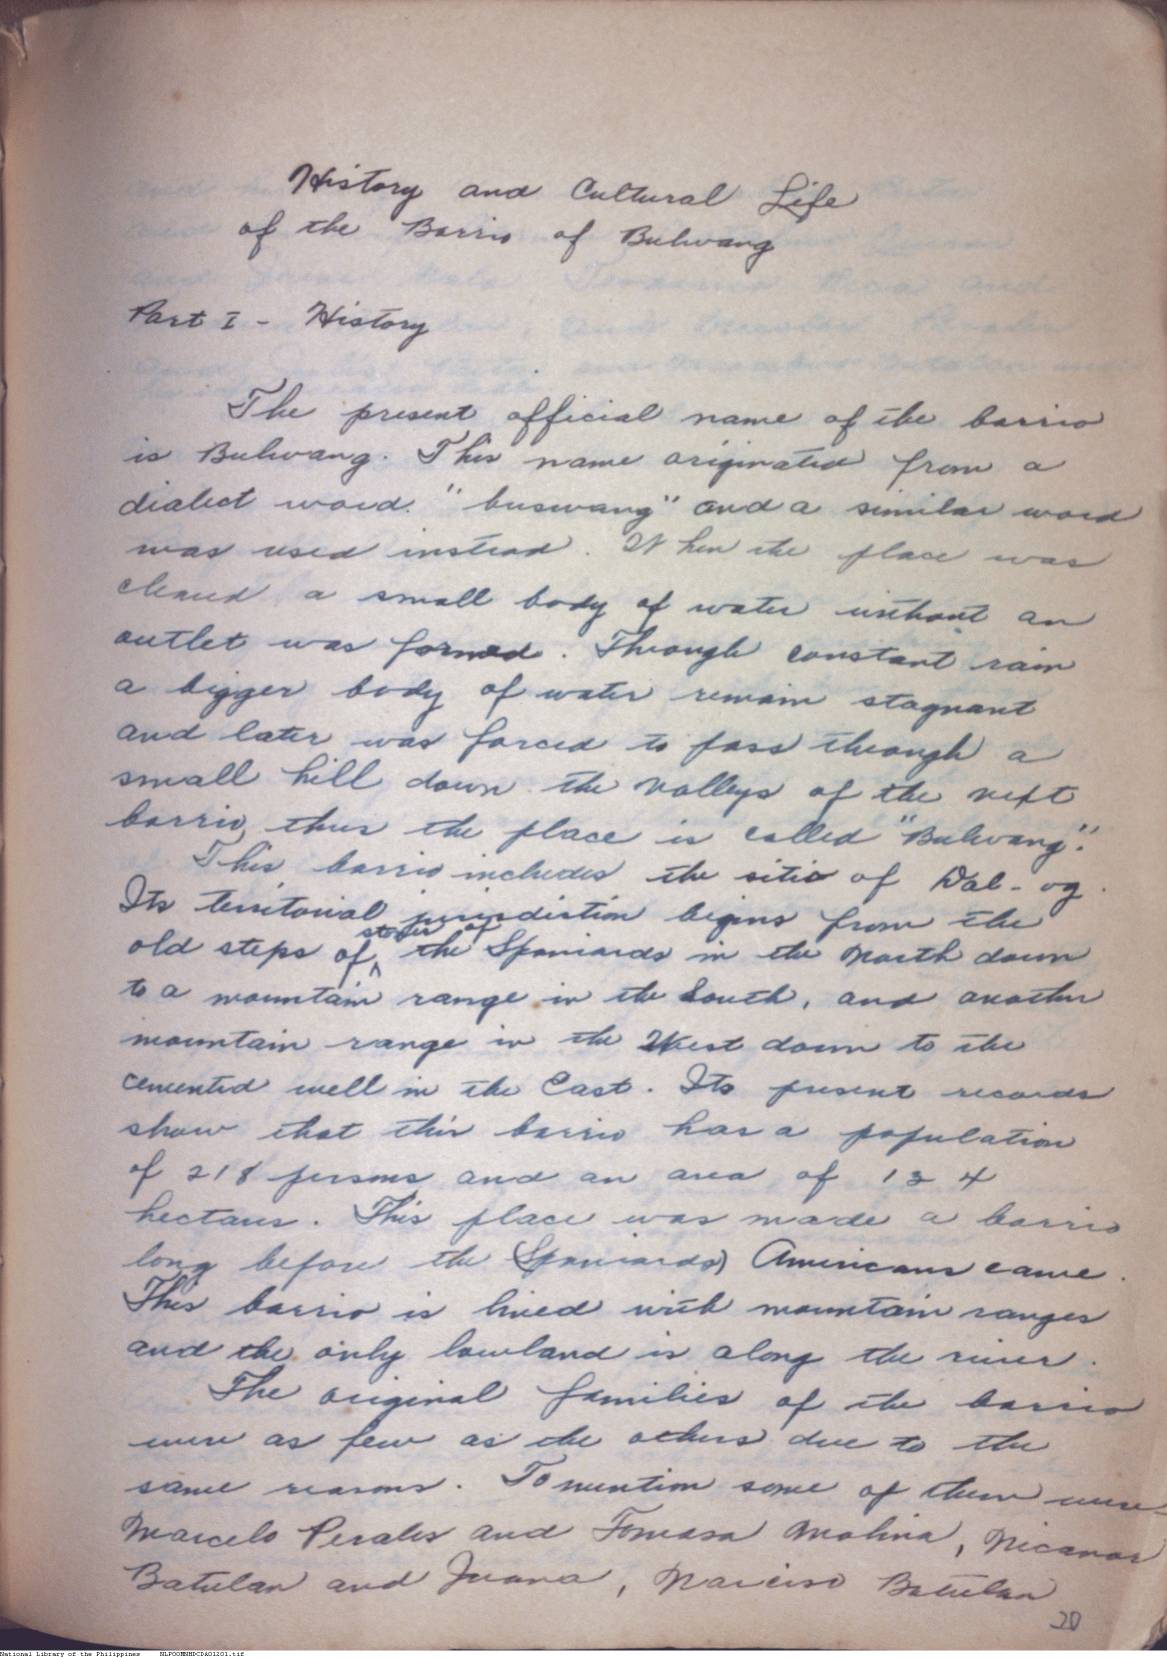 History and Cultural Life
of the Barrio of Bulwang
Part I - History
The present official name of the barrio
is Bulwang. This name originated from a
dialect word "buswang" and a similar word
was used instead. When the place was
cleared a small body of water without an
outlet was formed. Through constant rain
a bigger body of water remain stagnant
and later was forced to pass through a
small hill down the valleys of the next
barrio, thus the place is called "Bulwang".
This barrio includes the sitio of Dal-og.
Its territorial jurisdiction begins from the
stones of
old steps of the Spaniards in the North down
to a mountain range in the South, and another
mountain range in the West down to the
cemented well in the East. Its present records
show that this barrio has a population
of 218 persons and an area of 134
hectares. This place was made a barrio
long before the (Spaniards) Americans came.
This barrio is lined with mountain ranges
and the only lowland is along the river.
The original families of the barrio
were as few as the others due to the
same reasons. To mention some of them were
Marcelo Perales and Tomasa Molina, Nicanor
Batulan and Juana, Narciso Batulan
20
National Library of the Philippines NLPOOMNHDCDA01201.tif